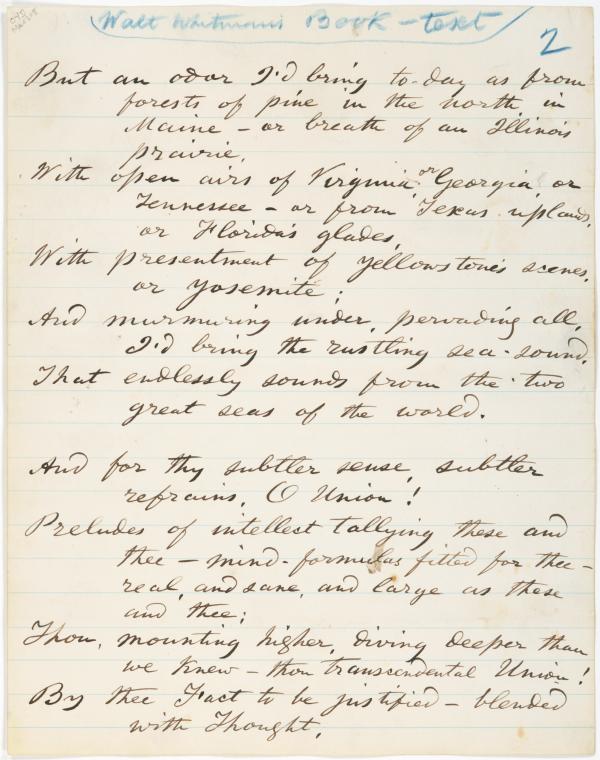 Walt Whitman's Book-text
2
But an odor I'd bring to-day as from
forests of pine in the north in
Maine – or breath of an Illinois
prairie,
With open airs of Virginia, or Georgia, or
Tennessee – or from Texas uplands,
or Florida's glades,
With presentment of Yellowstone's scenes,
or Yosemite;
And murmuring under, pervading all,
I'd bring the rustling sea-sound,
That endlessly sounds from the two
great seas of the world.
And for thy subtler sense, subtler
refrains, O Union!
Preludes of intellect tallying these and
thee – mind-formulas fitted for thee –
real, and sane, and large as these
and thee;
Thou, mounting higher, diving deeper than
we knew – thou transcendental Union!
By thee Fact to be justified – blended
with Thought,